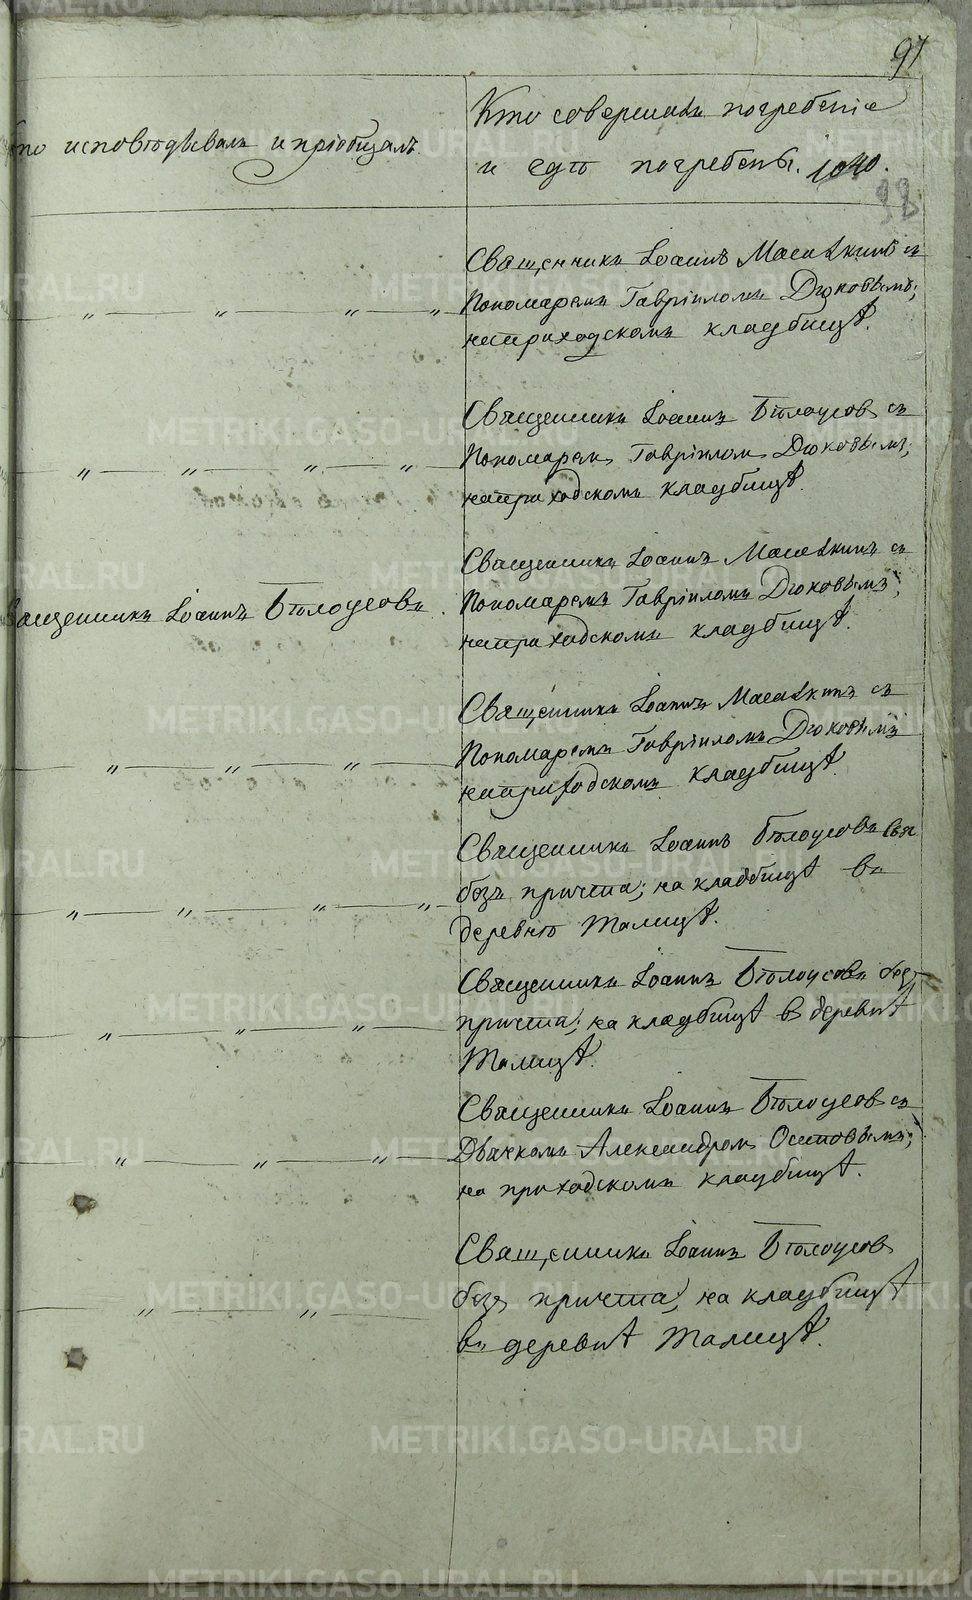 97
Кто исповѣдывалъ и пріобщалъ.
Кто совершалъ погребеніе
и гдѣ погребены. 1040.
98
Священникъ Іоаннъ съ
Пономаремъ Гавріиломъ Дюковымъ;
на приходскомъ кладбищѣ.
Священникъ Іоаннъ Бѣлоусовъ съ
Пономаремъ Гавріиломъ Дюковымъ;
на приходскомъ кладбищѣ.
Священникъ Іоаннъ съ
Священникъ Іоаннъ Бѣлоусовъ.
Пономаремъ Гавріиломъ Дюковымъ;
на приходскомъ кладбищѣ.
Священникъ Іоаннъ съ
Пономаремъ Гавріиломъ Дюковымъ
на приходскомъ кладбищѣ.
Священникъ Іоаннъ Бѣлоусовъ
безъ причта; на кладбищѣ въ
деревнѣ Талицѣ.
Священникъ Іоаннъ Бѣлоусовъ безъ
причта; на кладбищѣ въ деревнѣ
Талицѣ.
Священникъ Іоаннъ Бѣлоусовъ съ
Дьячкомъ Александромъ Осиповымъ;
на приходскомъ кладбищѣ.
Священникъ Іоаннъ Бѣлоусовъ
безъ причта; на кладбищѣ
въ деревнѣ Талицѣ.
METRIKI.GASO-URAL.RU